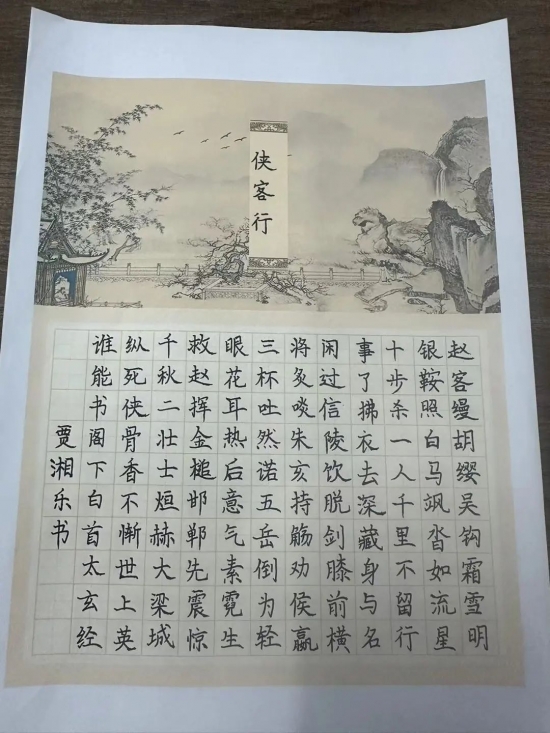 侠客行
赵客缦胡缨吴钩霜雪明
银鞍照白马飒沓如流星
十步杀一人千里不留行
事了拂衣去深藏身与名
闲过信陵饮脱剑膝前横
将炙啖朱亥持觞劝侯嬴
三杯吐然诺五岳倒为轻
眼花耳热后意气素霓生
救赵挥金槌邯郸先震惊
千秋二壮士烜赫大梁城
纵死侠骨香不惭世上英
谁能书阁下白首太玄经
贾湘乐书